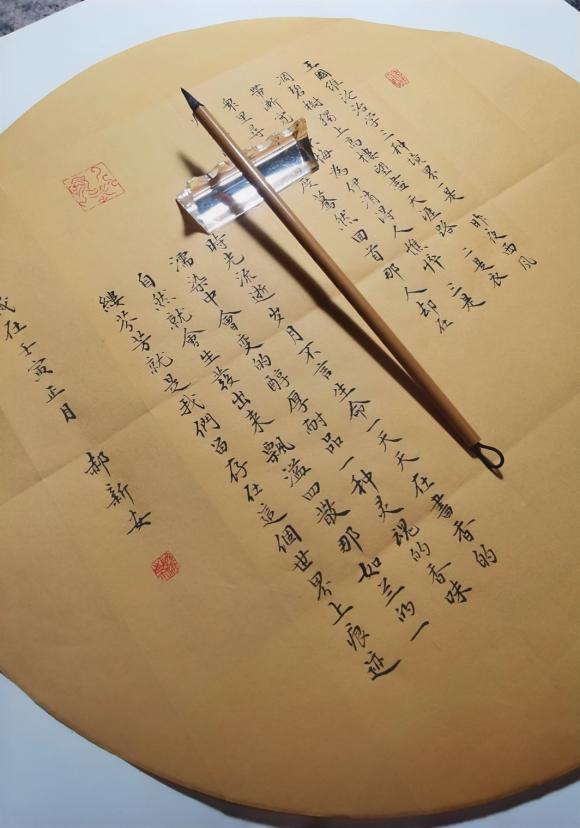 王國維论治学三种境界一是 昨夜西風
凋碧樹獨上高樓望盡天涯路 二是衣
帶漸寬 悔為伊消得人憔悴 三是
眾里尋 度驀然回首那人却在
時光流逝岁月不言生命一天天在書香的
濡染中會变的醇厚耐品一种灵魂的香味
自然就會生發出來飄溢四散那如兰的一
縷芬芳就是我們留存在這個世界上痕迹
歲在壬寅正月 郝新安